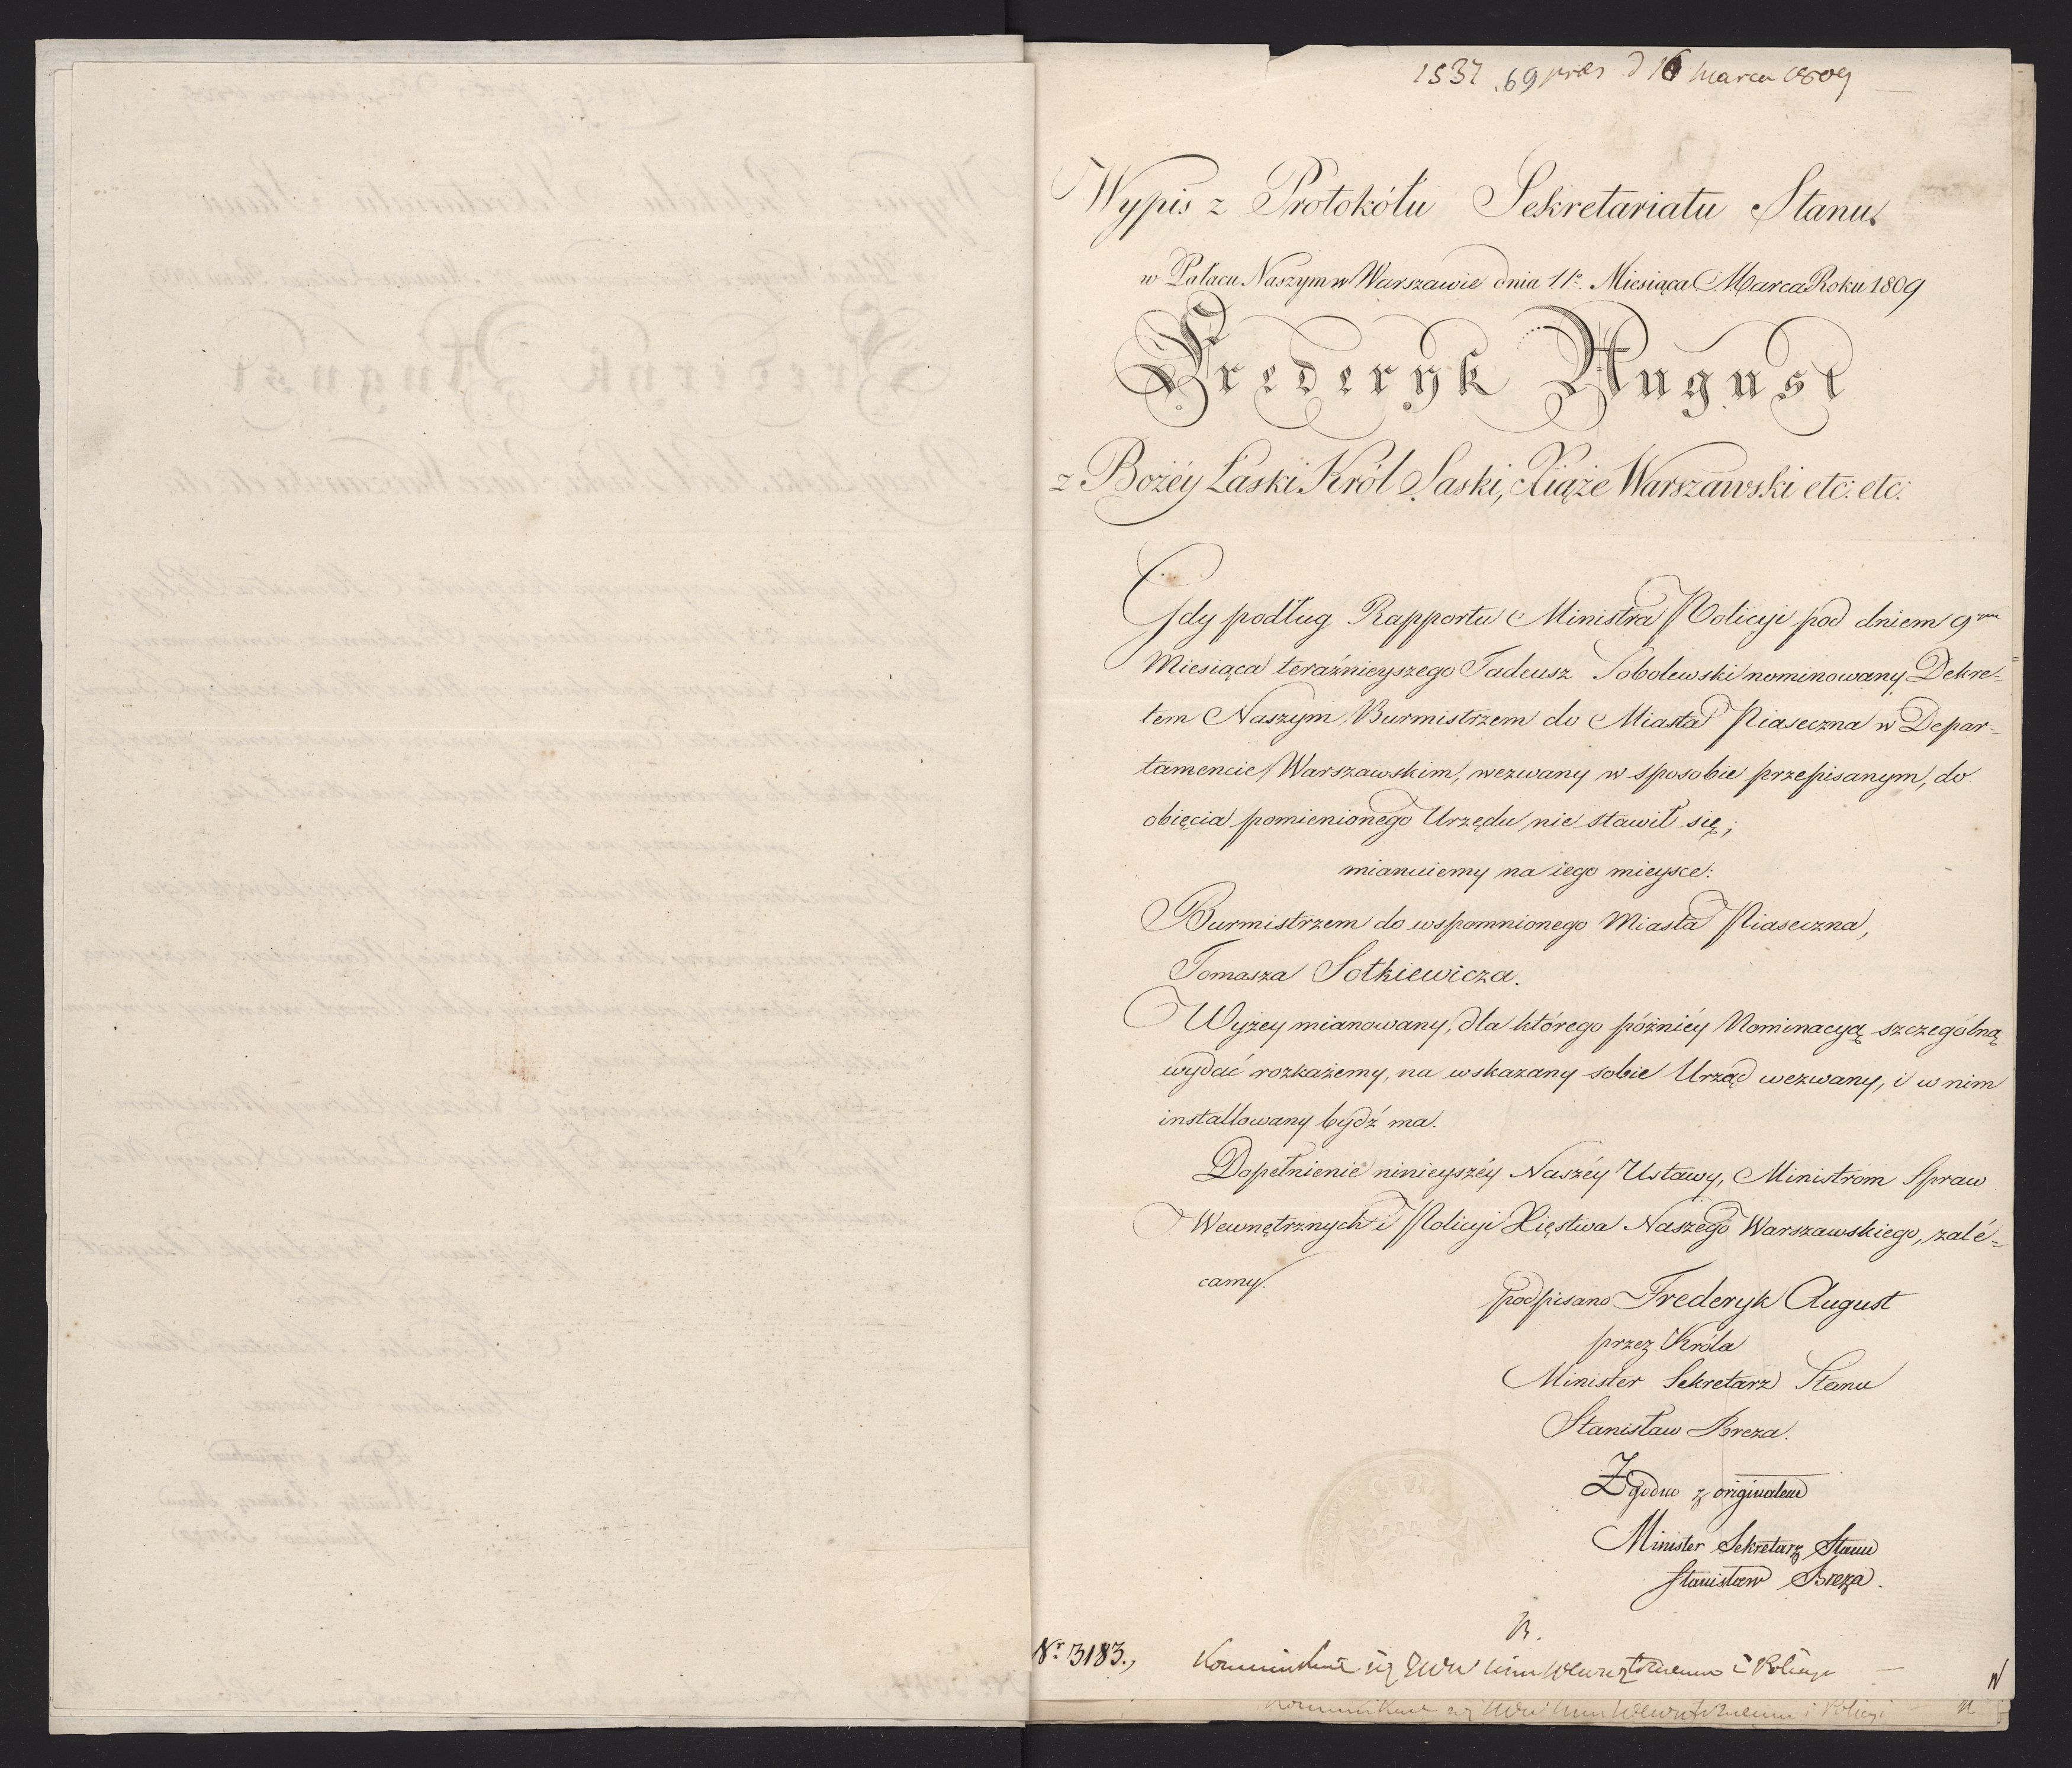 1537 69 pres d 16 Marca 1809
Wypis z Protokółu Sekretariatu Stanu
w Pałacu Naszym w Warszawie dnia 11º Miesiąca Marca Roku 1809
Frederyk August
z Bożéy Łaski Król Saski, Xiąże Warszawski etc: etc:
Gdy podług Rapportu Ministra Policyi pod dniem 9ym
Miesiąca teraźnieyszego Tadeusz Sobolewski nominowany Dekre=
tem Naszym Burmistrzem do Miasta Piaseczna w Depar=
tamencie Warszawskim, wezwany w sposobie przepisanym, do
obięcia pomienionego Urzędu nie stawił się;
mianuiemy na iego mieysce:
Burmistrzem do wspomnionego Miasta Piaseczna,
Tomasza Sotkiewicza.
Wyżey mianowany, dla którego późniéy Nominacyą szczególną
wydać rozkażemy, na wskazany sobie Urząd wezwany, i w nim
installowany bydź ma.
Dopełnienie ninieyszéy Naszéy Ustawy, Ministrom Spraw
Wewnętrznych i Policyi Xięstwa Naszego Warszawskiego, zalé=
camy.
podpisano Frederyk August
przez Króla
Minister Sekretarz Stanu
Stanisław Breza.
Zgodno z originałem
Minister Sekretarz Stanu
Stanisław Breza.
Nr. 3183.,